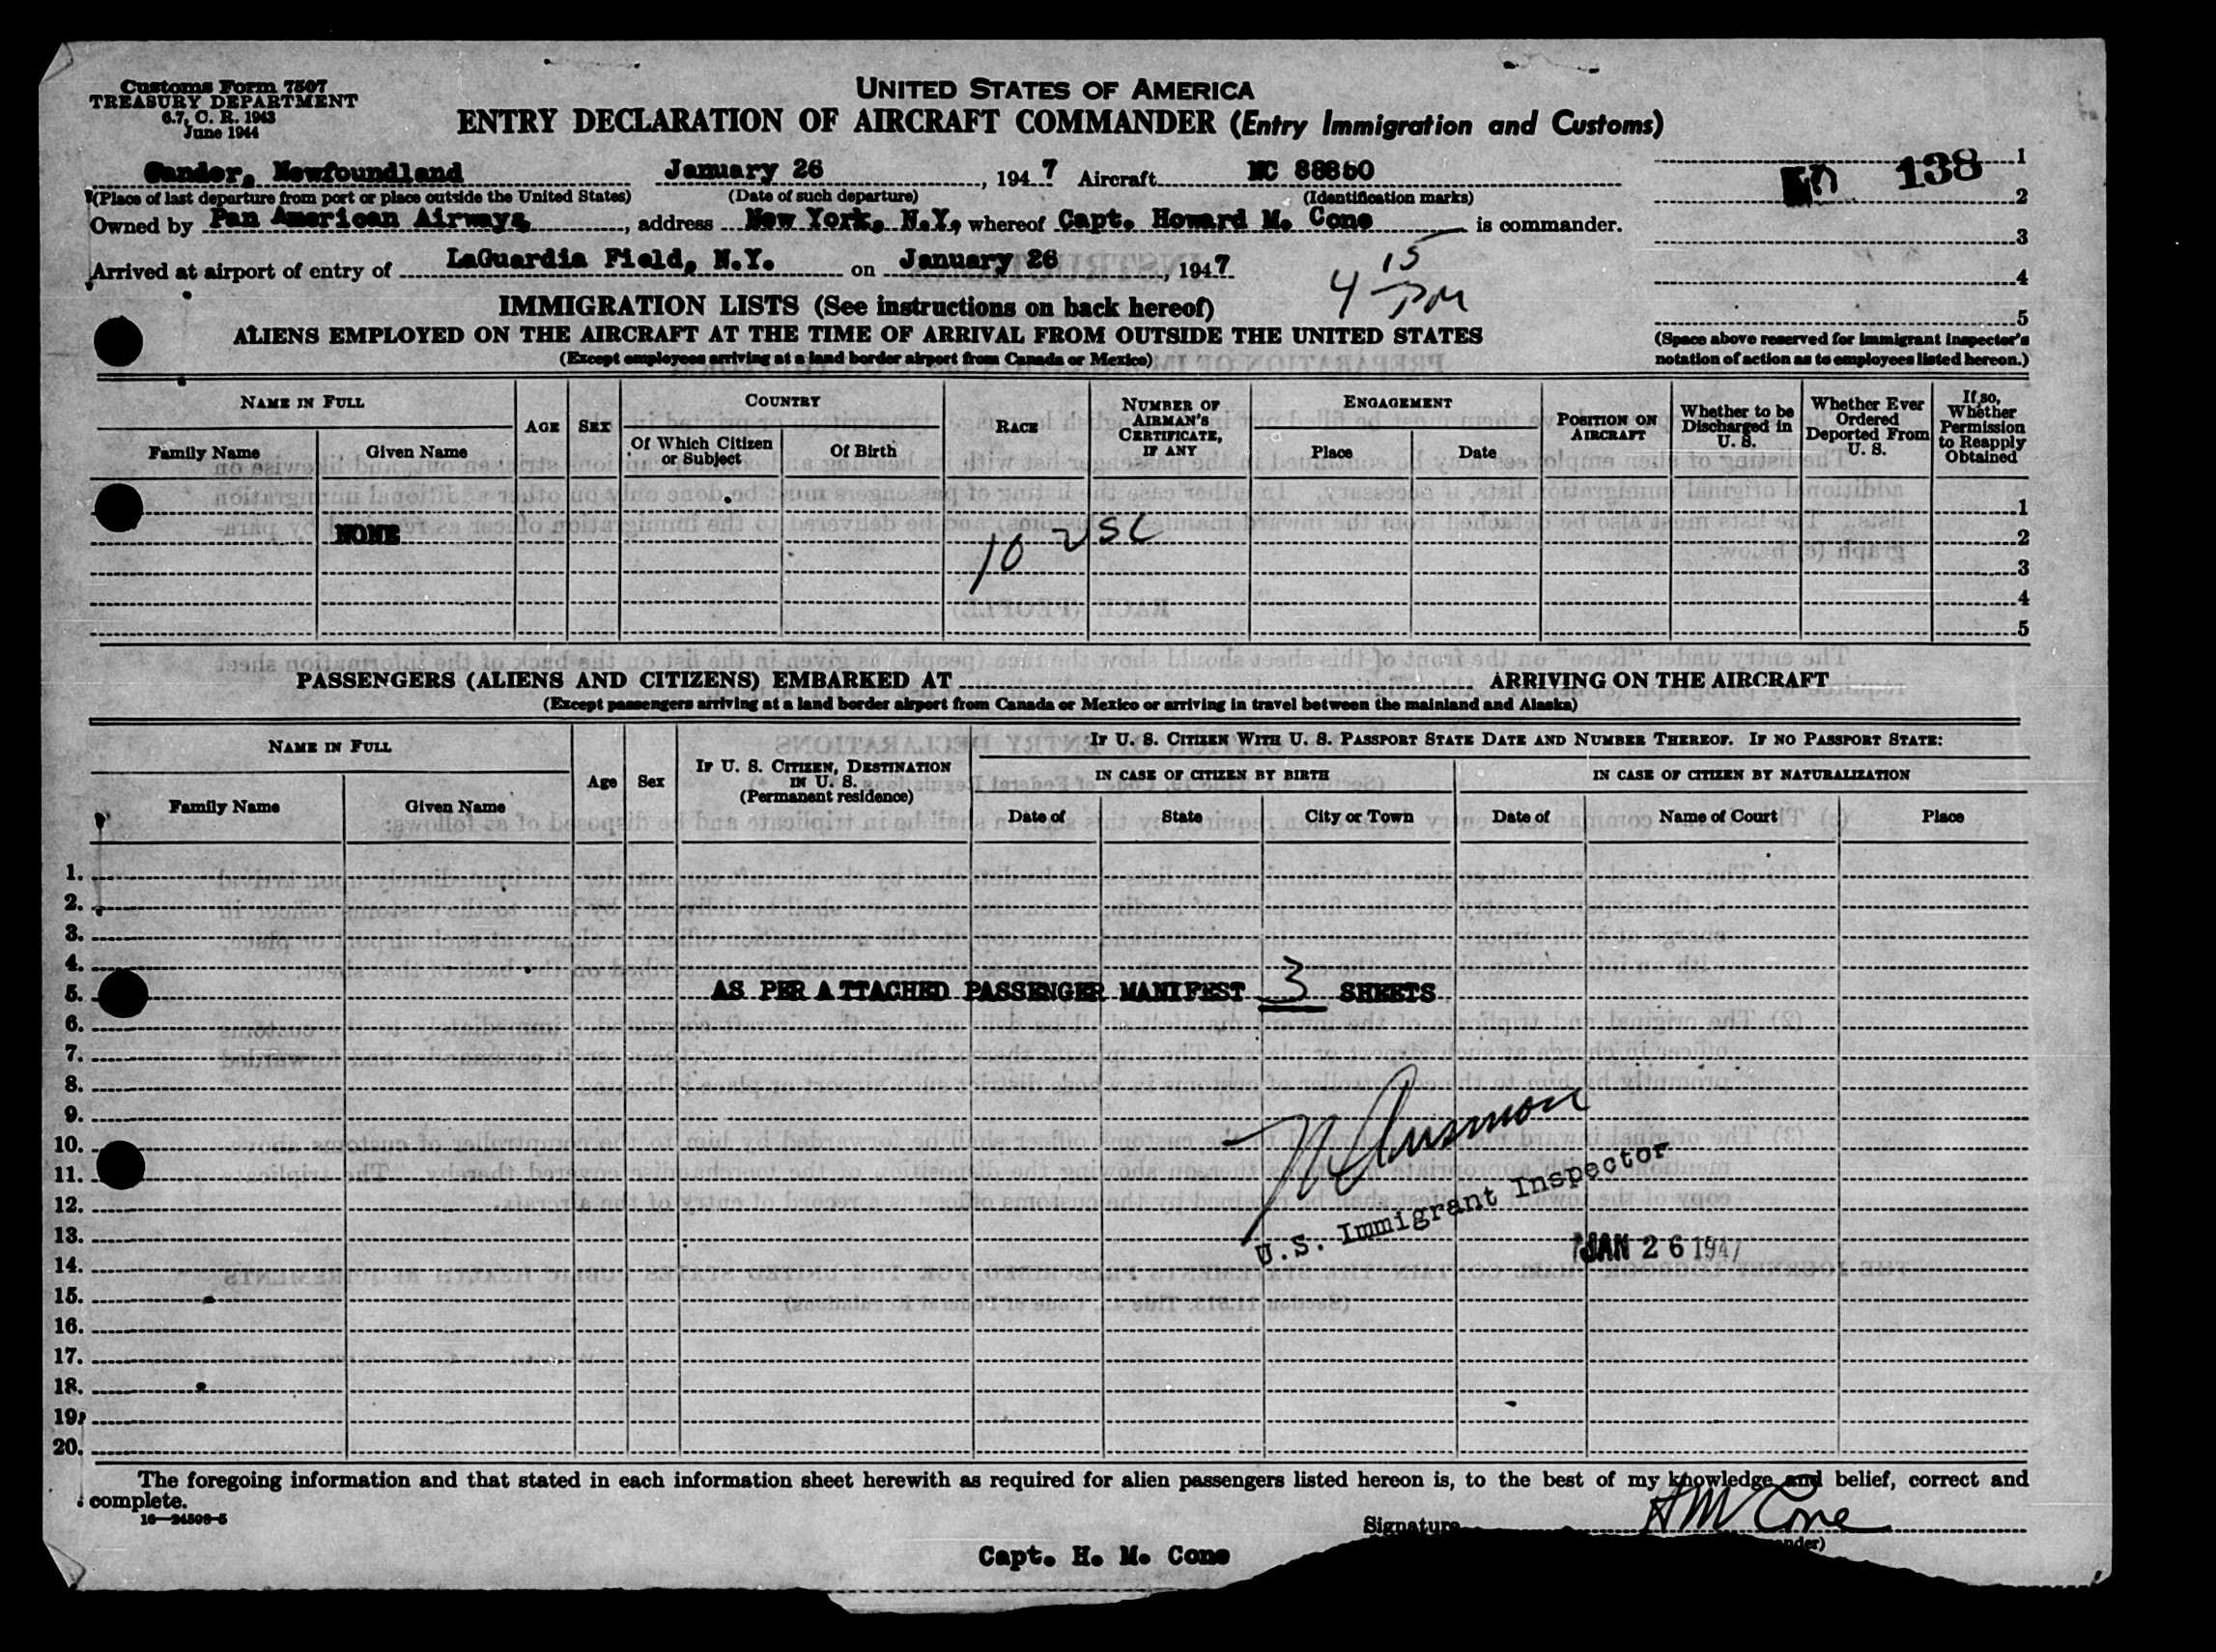 Customs Form 7507
TREASURY DEPARTMENT
6.7, C. R. 1943
June 1944
UNITED STATES OF AMERICA
ENTRY DECLARATION OF AIRCRAFT COMMANDER (Entry Immigration and Customs)
Gander, Newfoundland January 26, 1947 Aircraft NC 88850
(Place of last departure from port or place outside the United States) (Date of such departure) (Identification marks)
138
Owned by Pan American Airways, address New York, N.Y, whereof Capt. Howard M. Cone is commander.
Arrived at airport of entry of LaGuardia Field, N.Y. on January 26, 1947
4 15 PM
1
2
3
4
5
(Space above reserved for immigrant inspector's
notation of action as to employees listed hereon.)
IMMIGRATION LISTS (See instructions on back hereof)
ALIENS EMPLOYED ON THE AIRCRAFT AT THE TIME OF ARRIVAL FROM OUTSIDE THE UNITED STATES
(Except employees arriving at a land border airport from Canada or Mexico)
NAME IN FULL
Family Name Given Name
AGE SEX
COUNTRY
Of Which Citizen or Subject
Of Birth
RACE
NUMBER OF AIRMAN'S CERTIFICATE, IF ANY
ENGAGEMENT
Place Date
POSITION ON AIRCRAFT
Whether to be Discharged in U. S.
Whether Ever Ordered Deported From U. S.
If so, Whether Permission to Reapply Obtained
1
NONE 10 USC 2
3
4
5
PASSENGERS (ALIENS AND CITIZENS) EMBARKED AT ARRIVING ON THE AIRCRAFT
(Except passengers arriving at a land border airport from Canada or Mexico or arriving in travel between the mainland and Alaska)
NAME IN FULL
Family Name Given Name
Age Sex
IF U. S. CITIZEN, DESTINATION IN U. S.
(Permanent residence)
IF U. S. CITIZEN WITH U. S. PASSPORT STATE DATE AND NUMBER THEREOF. IF NO PASSPORT STATE:
IN CASE OF CITIZEN BY BIRTH IN CASE OF CITIZEN BY NATURALIZATION
Date of State City or Town Date of Name of Court Place
1.
2.
3.
4.
5. AS PER ATTACHED PASSENGER MANIFEST 3 SHEETS
6.
7.
8.
9.
10.
11.
12.
U.S. Immigrant Inspector
13.
JAN 26 1947
14.
15.
16.
17.
18.
19.
20.
The foregoing information and that stated in each information sheet herewith as required for alien passengers listed hereon is, to the best of my knowledge and belief, correct and
complete.
16—24598-5
Signature H M Cone
Capt. H. M. Cone